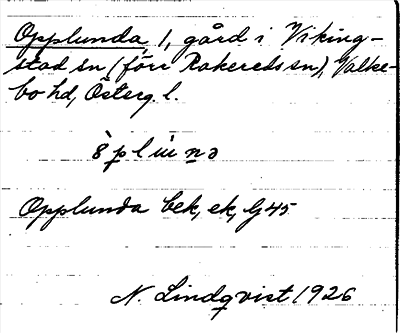 Opplunda, 1, gård i Viking-
stad sn (förr Rakereds sn), Valke-
bo hd, Österg. l.
Opplunda bek, ek, G 45
N. Lindqvist 1926